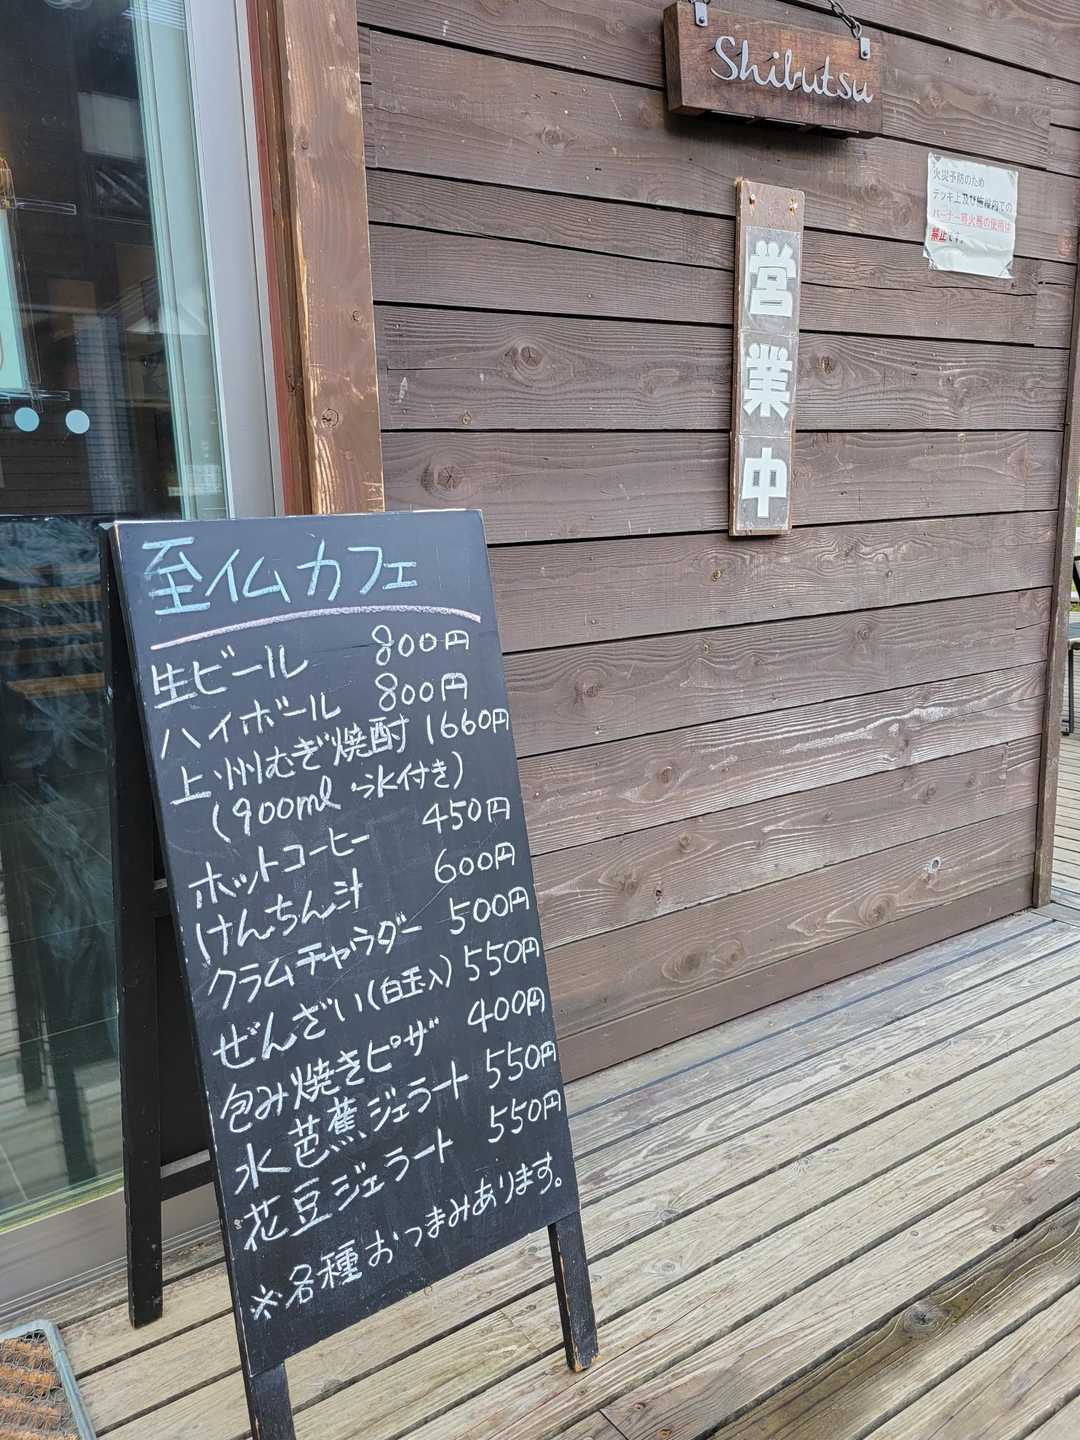 Shibutsu
火災予防のため
デッキ上及び施設内での
バーナー等火器の使用は
禁止です。
営業中
至仏カフェ
生ビール 800円
ハイボール 800円
上州むぎ焼酎 1660円
(900ml 氷付き)
ホットコーヒー 450円
けんちん汁 600円
クラムチャウダー 500円
ぜんざい(白玉入) 550円
包み焼きピザ 400円
水芭蕉ジェラート 550円
花豆ジェラート 550円
※各種おつまみあります。